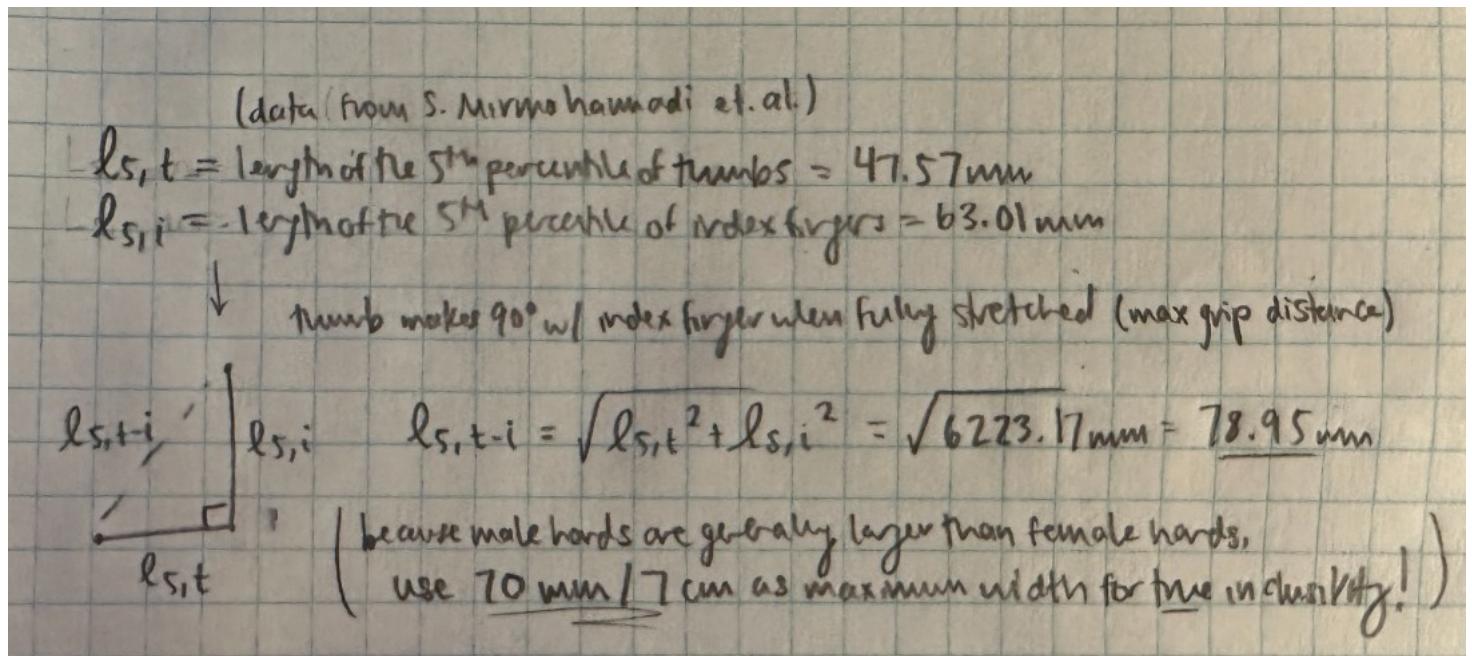 (data from S. Mirmohammadi et. al.)
l5,t = length of the 5th percentile of thumbs = 47.57mm
l5,i = length of the 5th percentile of index fingers = 63.01mm
↓ thumb makes 90° w/ index finger when fully stretched (max grip distance)
l5,t-i l5,i l5,t-i = √l5,t² + l5,i² = √6223.17mm = 78.95mm
l5,t
(because male hands are generally larger than female hands,
use 70 mm / 7 cm as maximum width for true inclusivity!)